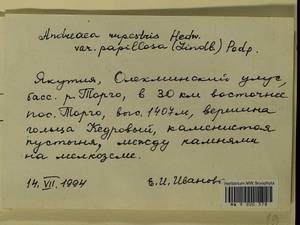 Andreaea rupestris Hedw.
var. papillosa (Lindb.) Podp.
Якутия, Олекминский улус,
басс. р. Торго, в 30 км восточнее
пос. Торго, выс. 1407 м, вершина
гольца Кедровый, каменистая
пустыня, между камнями
на мелкоземе.
14. VII. 1994 Е. И. Иванова